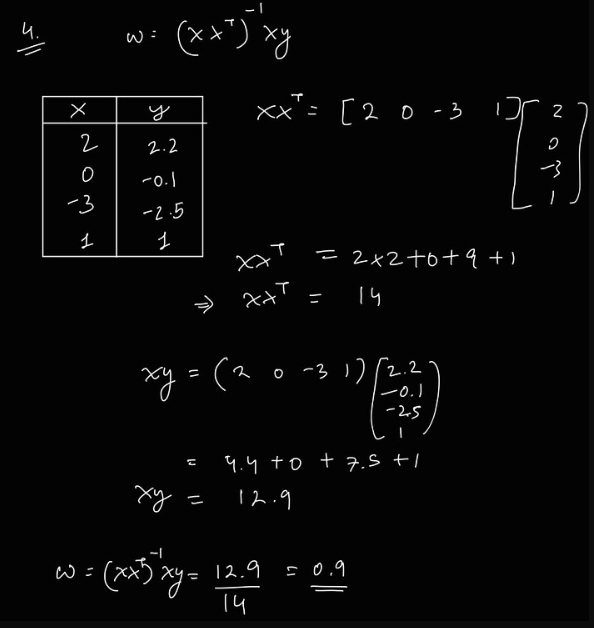 4. w = (xxᵀ)⁻¹xy
x y
2 2.2
0 -0.1
-3 -2.5
1 1
xxᵀ = [2 0 -3 1] [2 0 -3 1]
xxᵀ = 2x2+0+9+1
⇒ xxᵀ = 14
xy = (2 0 -3 1) [2.2 -0.1 -2.5 1]
= 4.4 +0 + 7.5 +1
xy = 12.9
w = (xxᵀ)⁻¹xy = 12.9/14 = 0.9